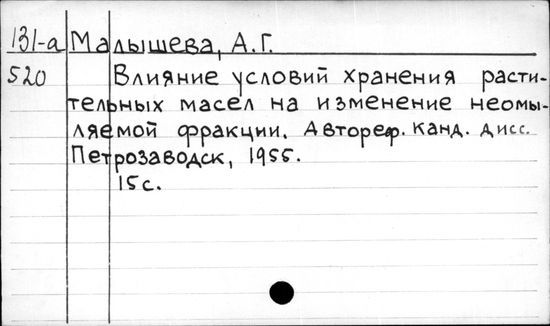 131-а Малышева, А.Г.
520 Влияние условий хранения расти-
тельных масел на изменение неомы-
ляемой фракции. Автореф. канд. дисс.
Петрозаводск, 1955.
15 с.